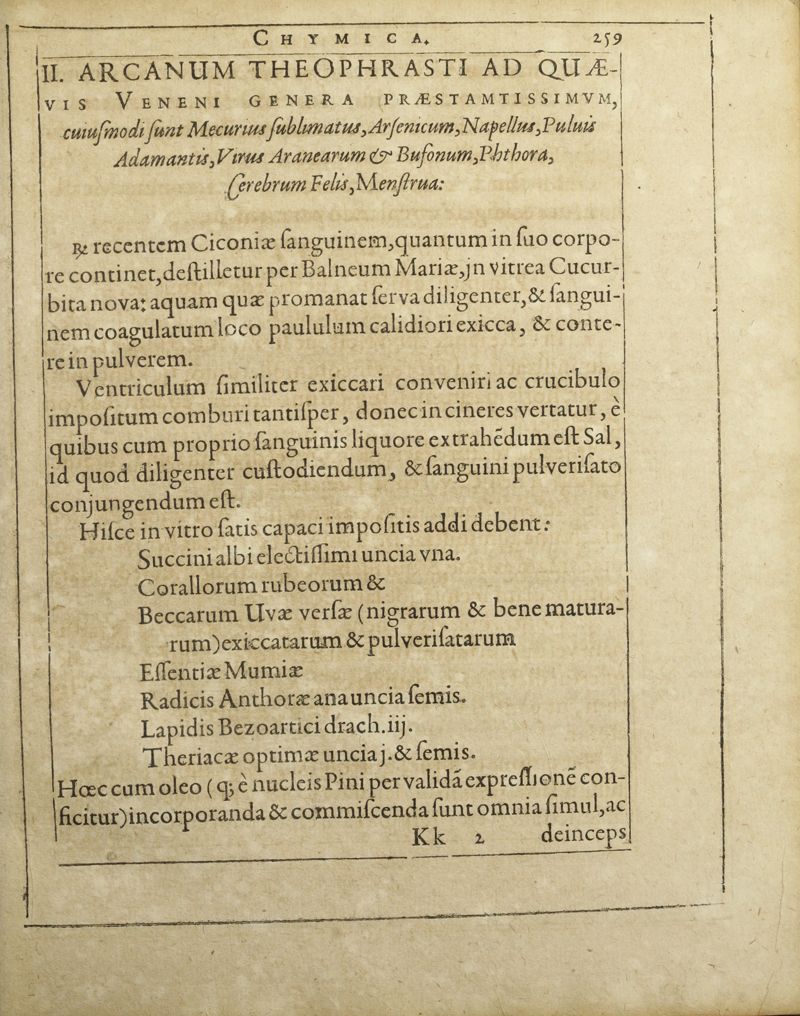 CHYMICA. 259
II. ARCANUM THEOPHRASTI AD QUÆ-
VIS VENENI GENERA PRÆSTAMTISSIMVM,
cuiuſmodi ſunt Mecurius ſublimatus, Arſenicum, Napellus, Puluis
Adamantis, Virus Aranearum & Bufonum, Phthora,
Cerebrum Felis, Menſtrua:
℞ recentem Ciconiæ ſanguinem, quantum in ſuo corpo-
re continet, deſtilletur per Balneum Mariæ, jn vitrea Cucur-
bita nova: aquam quæ promanat ſerva diligenter, & ſangui-
nem coagulatum loco paululum calidiori exicca, & conte-
re in pulverem.
Ventriculum ſimiliter exiccari conveniri ac crucibulo
impoſitum comburi tantiſper, donec in cineres vertatur, è
quibus cum proprio ſanguinis liquore extrahēdum eſt Sal,
id quod diligenter cuſtodiendum, & ſanguini pulveriſato
conjungendum eſt.
Hiſce in vitro ſatis capaci impoſitis addi debent:
Succini albi electiſſimi uncia vna.
Corallorum rubeorum &
Beccarum Uvæ verſæ (nigrarum & bene matura-
rum) exiccatarum & pulveriſatarum
Eſſentiæ Mumiæ
Radicis Anthoræ ana uncia ſemis.
Lapidis Bezoartici drach. iij.
Theriacæ optimæ uncia j. & ſemis.
Hœc cum oleo (q; è nucleis Pini per validā expreſſionē con-
ficitur) incorporanda & commiſcenda ſunt omnia ſimul, ac
Kk 2 deinceps